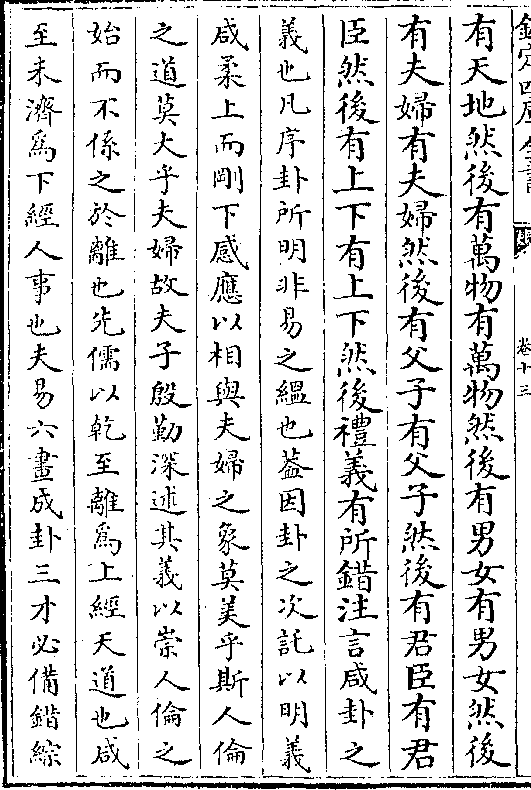 欽定四庫全書 卷十三
有天地然後有萬物有萬物然後有男女有男女然後
有夫婦有夫婦然後有父子有父子然後有君臣有君
臣然後有上下有上下然後禮義有所錯注言咸卦之
義也凡序卦所明非易之緼也葢因卦之次託以明義
咸柔上而剛下感應以相與夫婦之象莫美乎斯人倫
之道莫大乎夫婦故夫子殷勤深述其義以崇人倫之
始而不係之於離也先儒以乾至離爲上經天道也咸
至未濟爲下經人事也夫易六畫成卦三才必備錯綜